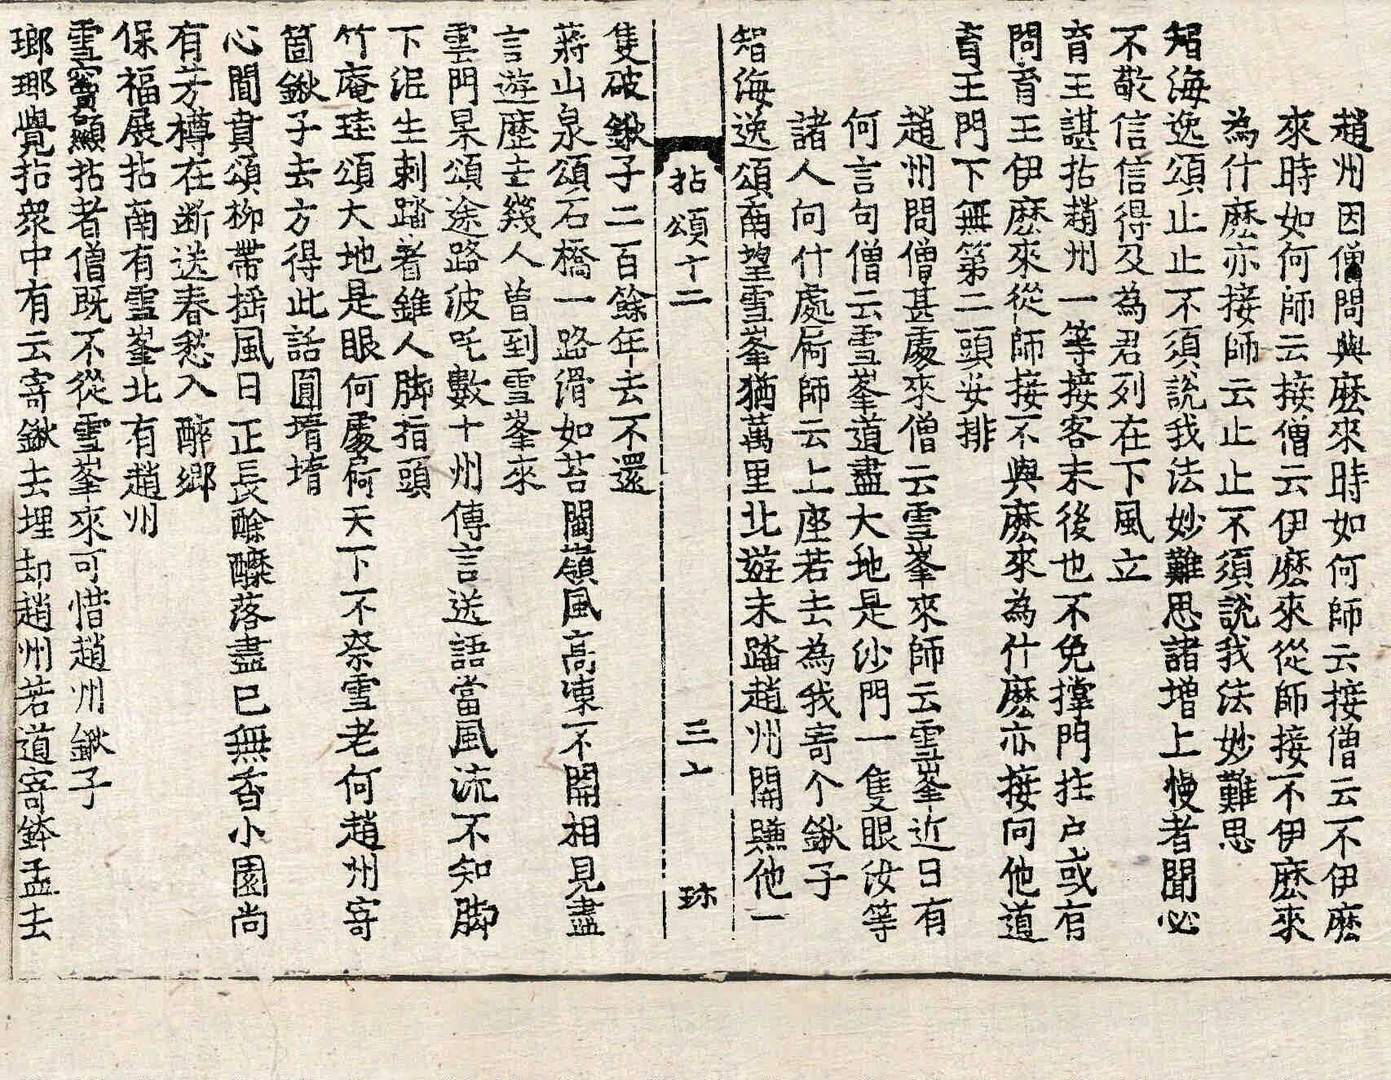 趙州因僧問與麽來時如何師云接僧云不伊麽
來時如何師云接僧云伊麽來從師接不伊麽來
為什麽亦接師云止止不須說我法妙難思
智海逸頌止止不須說我法妙難思諸增上慢者聞必
不敬信信得及為君列在下風立
育王諶拈趙州一等接客末後也不免撑門拄戶或有
問育王伊麽來從師接不與麽來為什麽亦接向他道
育王門下無第二頭安排
趙州問僧甚處來僧云雪峯來師云雪峯近日有
何言句僧云雪峯道盡大地是沙門一隻眼汝等
諸人向什處屙師云上座若去為我寄个鍬子
智海逸頌南望雪峯猶萬里北遊未踏趙州關賺他一
拈頌十二 三十 珎
隻破鍬子二百餘年去不還
蔣山泉頌石橋一路滑如苔閩嶺風高凍不開相見盡
言遊歷去幾人曾到雪峯來
雲門杲頌途路波吒數十州傳言送語當風流不知脚
下泥生刺踏著錐人脚指頭
竹庵珪頌大地是眼何處屙天下不奈雪老何趙州寄
箇鍬子去方得此話圓㙐㙐
心聞賁頌柳帶揺風日正長酴醾落盡已無香小園尚
有芳樽在斷送春愁入醉鄉
保福展拈南有雪峯北有趙州
雪竇顯拈者僧既不從雪峯來可惜趙州鍬子
瑯瑘覺拈衆中有云寄鍬去埋却趙州若道寄鉢盂去